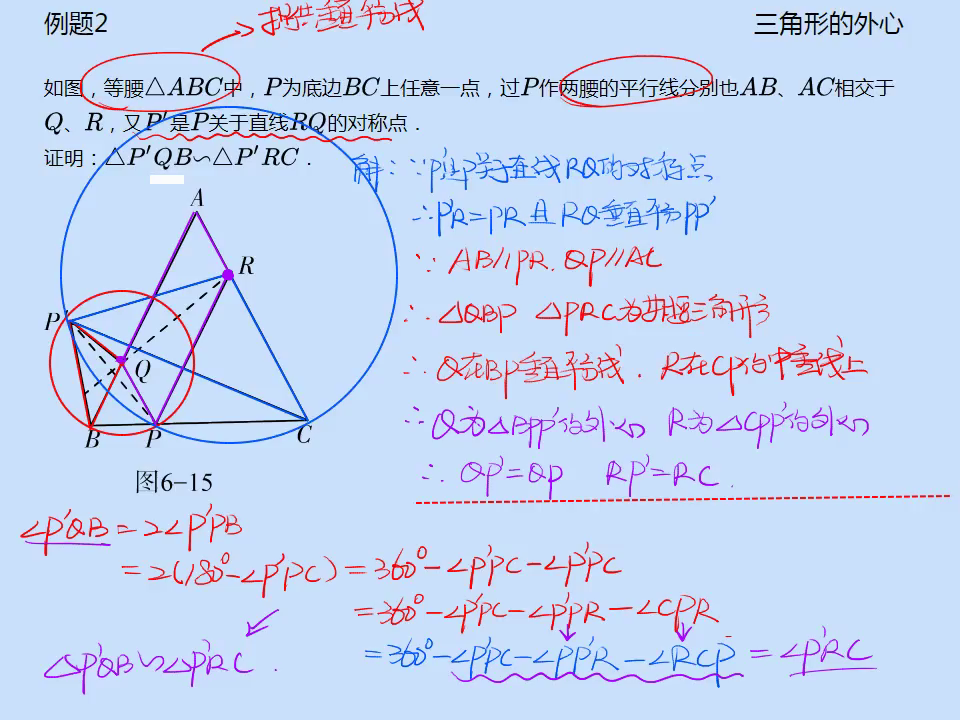 例题2
提供垂直平分线
三角形的外心
如图，等腰△ABC中，P为底边BC上任意一点，过P作两腰的平行线分别也AB、AC相交于
Q、R，又P′是P关于直线RQ的对称点．
证明：△P′QB∽△P′RC．
解：∵P′是P关于直线RQ的对称点
∴P′R=PR且RQ垂直平分PP′
∵AB//PR．QP//AC
∴△QBP △PRC为等腰三角形
∴Q在BP垂直平分线．R在CP的中垂线上
∴Q为△BPP′的外心 R为△CPP′的外心
∴QP′=QP RP′=RC．
A
R
P′
Q
B
P
C
图6-15
∠P′QB=2∠P′PB
=2(180°-∠P′PC)=360°-∠P′PC-∠P′PC
=360°-∠P′PC-∠P′PR-∠CPR
=360°-∠P′PC-∠PP′R-∠RCP=∠P′RC
△P′QB∽△P′RC．